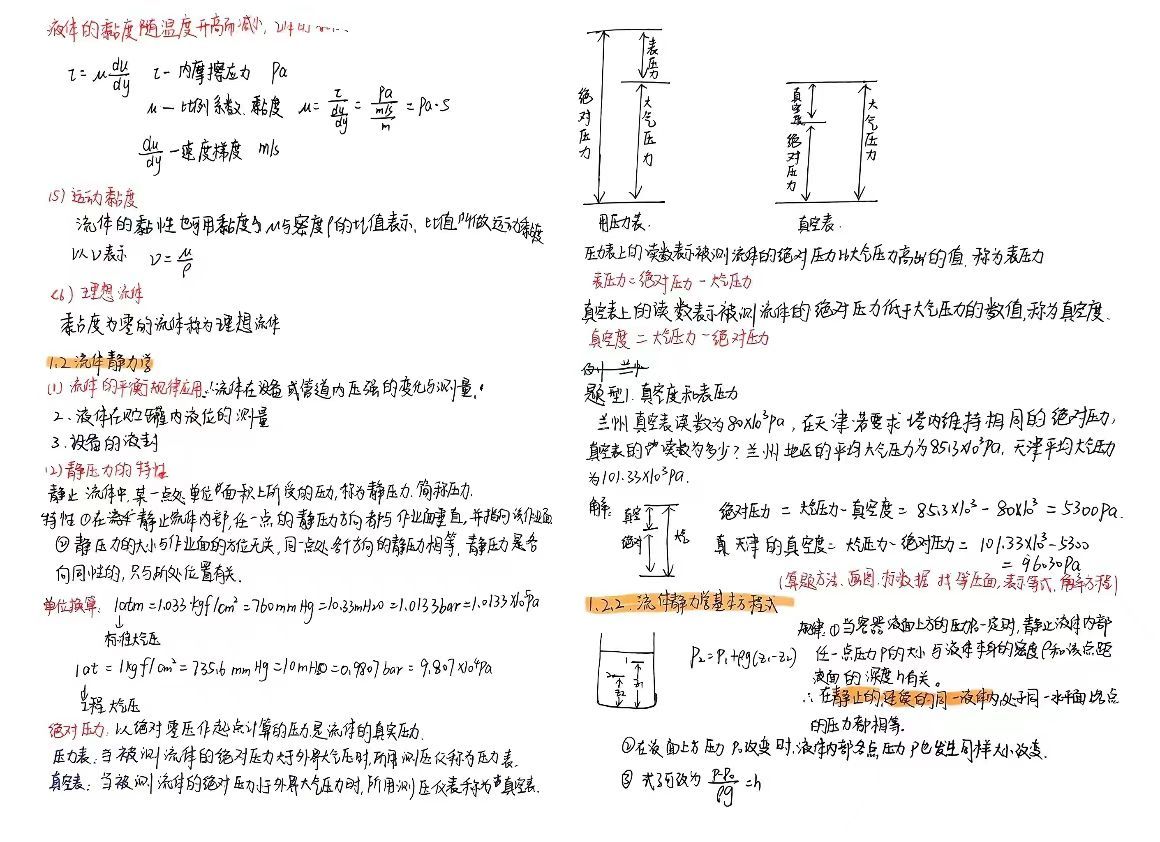 液体的黏度随温度升高而减小,
τ=μ du/dy τ-内摩擦应力 Pa
μ-比例系数.黏度 μ= τ/(du/dy) = Pa/((m/s)/m) =Pa·s
du/dy -速度梯度 m/s
(5)运动黏度
流体的黏性也可用黏度μ与密度ρ的比值表示,比值叫做运动黏度
以ν表示 ν=μ/ρ
(6)理想流体
黏度为零的流体称为理想流体
1.2流体静力学
(1)流体的平衡规律应用:1.流体在设备或管道内压强的变化与测量.
2.液体在贮罐内液位的测量
3.设备的液封
(2)静压力的特性
静止流体中,某一点处单位面积上所受的压力,称为静压力.简称压力.
特性①在静止流体内部,任一点的静压力方向都与作业面垂直,并指向该作业面
②静压力的大小与作业面的方位无关,同一点处各个方向的静压力相等,静压力是各
向同性的,只与所处位置有关.
单位换算:1atm=1.033kgf/cm²=760mmHg=10.33mH2O=1.0133bar=1.0133×10⁵Pa
↓
标准大气压
1at=1kgf/cm²=735.6mmHg=10mH2O=0.9807bar=9.807×10⁴Pa
↓
工程大气压
绝对压力:以绝对零压作起点计算的压力是流体的真实压力.
压力表:当被测流体的绝对压力大于外界大气压时,所用测压仪称为压力表.
真空表:当被测流体的绝对压力小于外界大气压力时,所用测压仪表称为真空表.
绝对压力
表压力
大气压力
用压力表.
真空度
绝对压力
大气压力
真空表.
压力表上的读数表示被测流体的绝对压力比大气压力高出的值.称为表压力
表压力=绝对压力-大气压力
真空表上的读数表示被测流体的绝对压力低于大气压力的数值,称为真空度.
真空度=大气压力-绝对压力
题型1.真空度和表压力
兰州真空表读数为80×10³Pa,在天津若要求塔内维持相同的绝对压力,
真空表的读数为多少?兰州地区的平均大气压力为85.3×10³Pa,天津平均大气压力
为101.33×10³Pa.
解:
真空
绝对
大气
绝对压力=大气压力-真空度=85.3×10³-80×10³=5300Pa.
天津的真空度=大气压力-绝对压力=101.33×10³-5300
=96030Pa
(算题方法、画图.标数据 找等压面,表示等式,解方程)
1.2.2.流体静力学基本方程式
1
2
z1
z2
P2=P1+ρg(z1-z2)
规律:①当容器液面上方的压力P0一定时,静止液体内部
任一点压力P的大小与液体本身的密度ρ和该点距
液面的深度h有关。
∴在静止的,连续的同一液体内处于同一水平面上各点
的压力都相等.
②在液面上方压力P0改变时,液体内部各点压力P也发生同样大小改变.
③式子可改为 (P-P0)/ρg =h